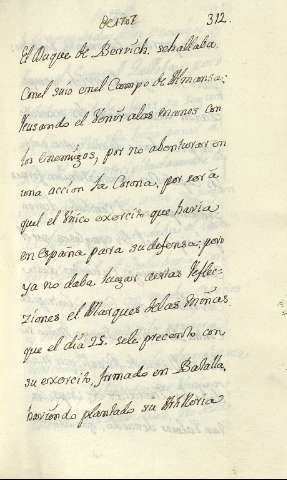 De 1707
312.
El Duque de Berrich. sehallaba
Conel suio enel Campo de Almansa;
Reusando el Venir alas manos con
los Enemigos, por no abenturar en
una accion la Corona, por ser a
quel el Unico exorcito que havia
en España parra su defensa; pero
ya no daba lugar aestas Reflec-
ziones el Marques delas Minas
que el dia 25. sele precento con
su exorcito, formado en Batalla,
haviendo plantado su Artilleria